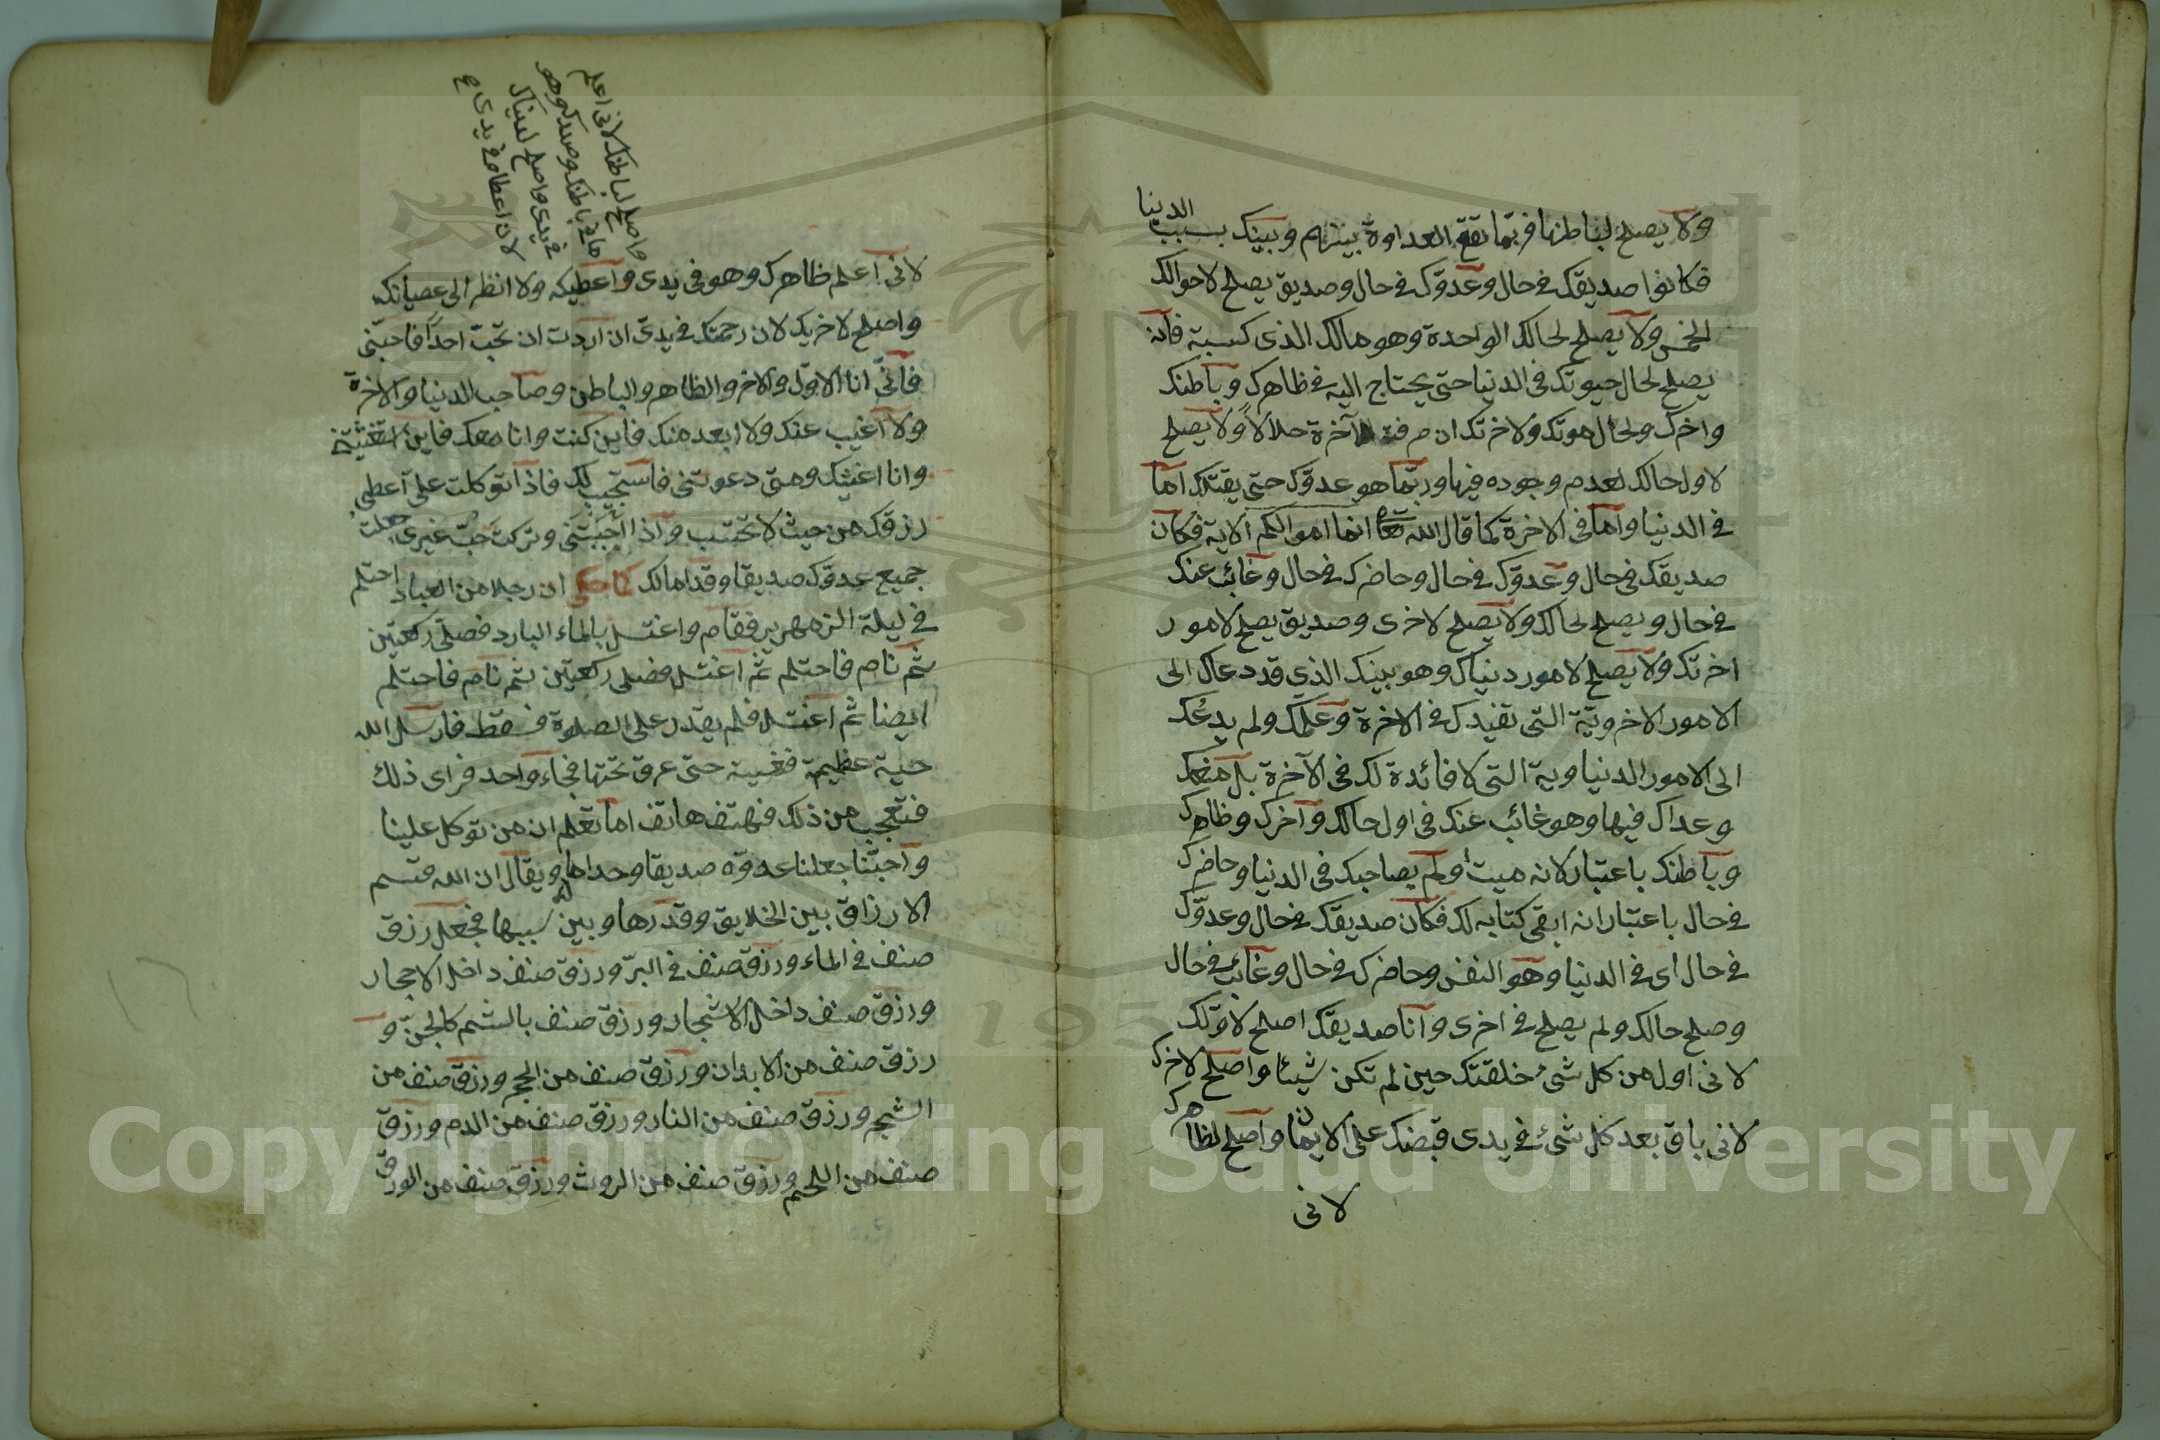 ولا يصلح لباطنها فربما تقع العداوة بينهم وبينك بسبب الدنيا
فكانوا صديقك في حال وعدوك في حال وصديق يصلح لاحوالك
الخمس ولا يصلح لحالك الواحدة وهو مالك الذي كسبته فانه
يصلح لحال حيوتك في الدنيا حتى يحتاج اليه في ظاهرك وباطنك
واخرك ولحال موتك ولاخرتك ان صرفته آخرة حلالاً ولا يصلح
لاول حالك لعدم وجوده فيها وربما هو عدوك حتى يقتلك اما
في الدنيا واما في الاخرة كما قال الله تعا انما اموالكم الاية فكان
صديقك في حال وعدوك في حال وحاضرك في حال وغائب عنك
في حال ويصلح لحالك ولا يصلح لاخرى وصديق يصلح لامور
اخرتك ولا يصلح لامور دنياك وهو نبيك الذي قد دعاك الى
الامور الاخروية التي تفيدك في الاخرة وعلمك ولم يدعك
الى الامور الدنياوية التي لا فائدة لك في الآخرة بل منعك
وعداك فيها وهو غائب عنك في اول حالك وآخرك وظاهرك
وباطنك باعتبار لانه ميت ولم يصاحبك في الدنيا وحاضرك
في حال باعتبار انه ابقى كتابه لك فكان صديقك في حال وعدوك
في حال اى في الدنيا وهو النفس وحاضرك في حال وغائب في حال
وصلح حالك ولم يصلح في اخرى وانا صديقك اصلح لاولك
لانى اول من كل شئ خلقتك حين لم تكن شيئا واصلح لاخرك
لانى باق بعد كل شئ في يدى قبضك على الايمان واصلح لظاهرك
لانى
واصلح لباطنك لانى اعلم
ما في باطنك وصدرك وهو
في يدى واصلح لدنياك
لان اعطاء في يدى صح
لانى اعلم ظاهرك وهو في يدى واعطيكه ولا انظر الى عصيانك
واصلح لاخريك لان رحمتك في يدى ان اردت ان تحب احدًا فاحبنى
فانى انا الاول والاخر والظاهر والباطن وصاحب الدنيا والاخرة
ولا اغيب عنك ولا ابعد منك فاين كنت وانا معك فاين استغثتنى
وانا اغيثك ومتى دعوتنى فاستجيب لك فاذا توكلت على اعطى
رزقك من حيث لا تحتسب واذا احببتنى وتركت حب غيرى جعلت
جميع عدوك صديقا وقداما لك كما حكى ان رجلا من العباد احتلم
في ليلة الزمهرير فقام واغتسل بالماء البارد فصلى ركعتين
ثم نام فاحتلم ثم اغتسل فصلى ركعتين ثم نام فاحتلم
ايضا ثم اغتسل فلم يقدر على الصلوة فسقط فارسل الله
حية عظيمة فغـية حتى عرق تحتها فجاء واحد فراى ذلك
فتعجب من ذلك فهتف هاتف اما تعلم ان من توكل علينا
واحبنا جعلنا عدوه صديقا وحداما له ويقال ان الله قسم
الارزاق بين الخلايق وقدرها وبين سببها فجعل رزق
صنف في الماء ورزق صنف في البر ورزق صنف داخل الاحجار
ورزق صنف داخل الاشجار ورزق صنف بالشم كالجن و
رزق صنف من الابدان ورزق صنف من الحجر ورزق صنف من
الشجر ورزق صنف من النار ورزق صنف من الدم ورزق
صنف من اللحم ورزق صنف من الروث ورزق صنف من الورق
Copyright © King Saud University
1957